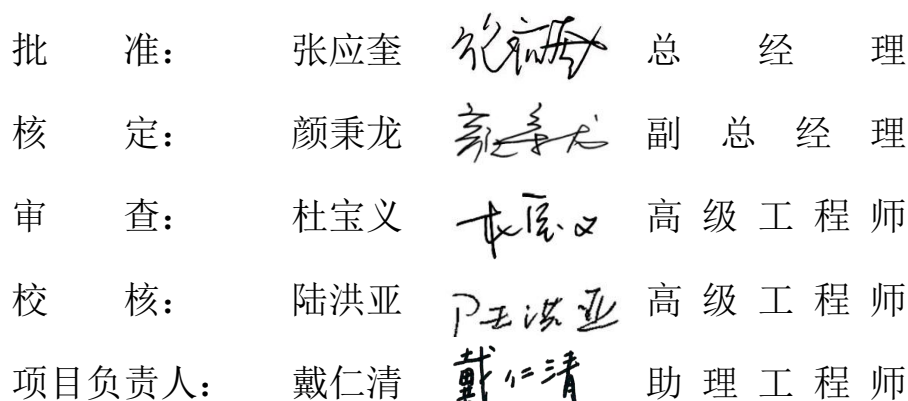 批准： 张应奎 张应奎 总经理
核定： 颜秉龙 颜秉龙 副总经理
审查： 杜宝义 杜宝义 高级工程师
校核： 陆洪亚 陆洪亚 高级工程师
项目负责人： 戴仁清 戴仁清 助理工程师